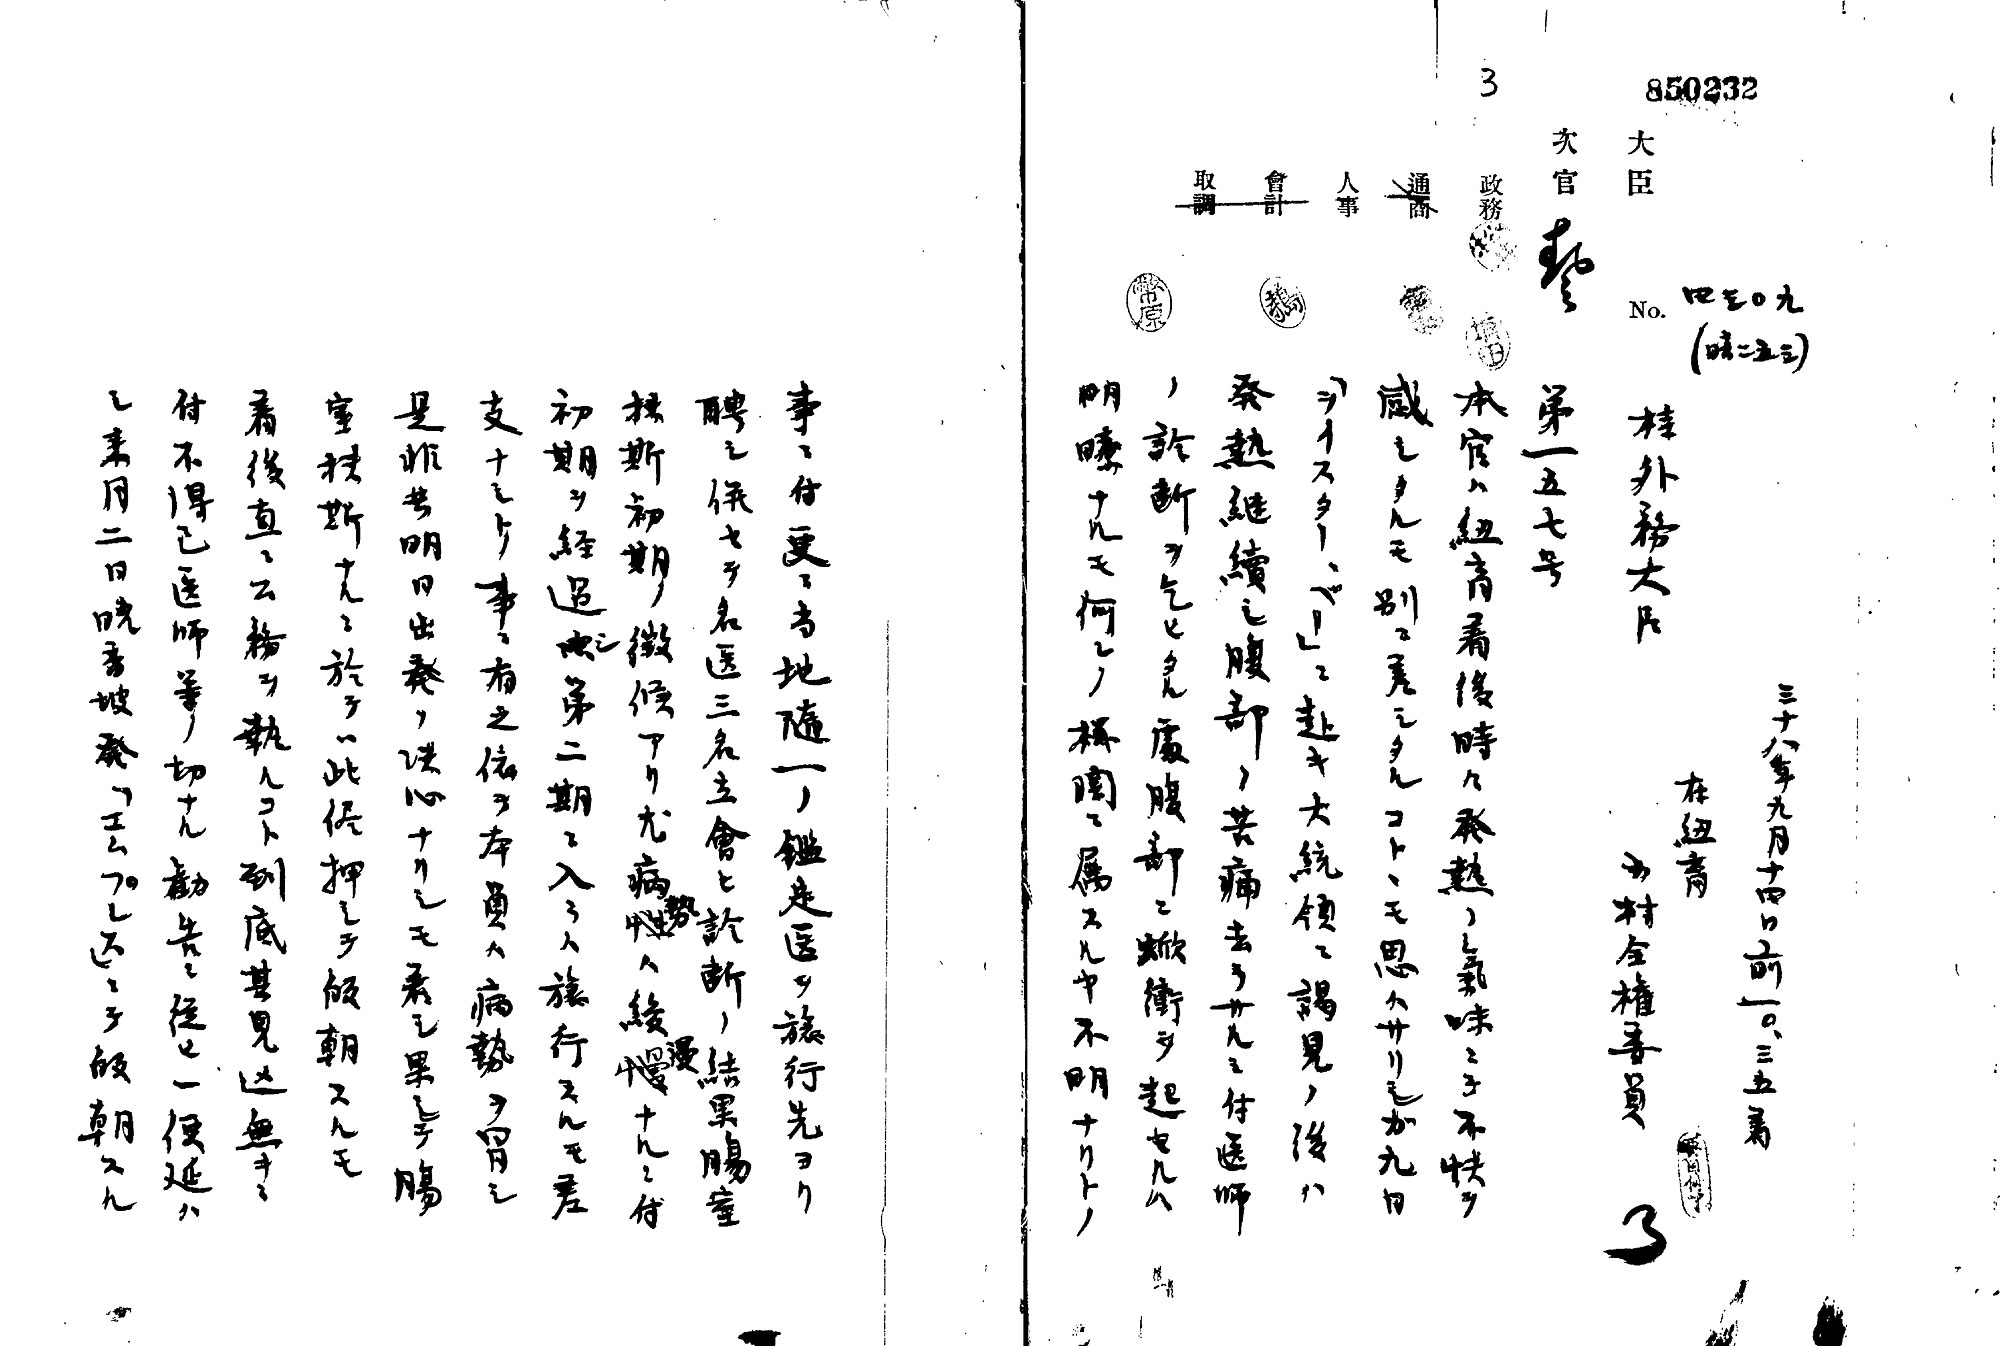 850232
3
大臣
次官
政務
通商
人事
會計
取調
幣原
No. 四三〇九
(暗二五三)
三十八年九月十四日前一〇、三五着
在紐育
小村全権委員
桂外務大臣
第一五七号
本官ハ紐育着後時々発熱ノ氣味ニテ不快ヲ
感シタルモ別ニ差シタルコトヽモ思ハサリシガ九日
「ヲイスター、ベー」ニ赴キ大統領ニ謁見ノ後ハ
発熱継續シ腹部ノ苦痛去ラサルニ付医師
ノ診断ヲ乞ヒタル處腹部ニ衝ヲ起セルハ
明瞭ナルモ何レノ機関ニ属スルヤ不明ナリトノ
事ニ付更ニ当地随一ノ鑑定医ヲ旅行先ヨリ
聘シ併セテ名医三名立會ヒ診断ノ結果腸窒
扶斯初期ノ徴候アリ尤病勢ハ緩漫ナルニ付
初期ヲ経過シ第二期ニ入ラハ旅行スルモ差
支ナシトノ事ニ有之依テ本員ハ病勢ヲ冒シ
是非共明日出発ノ決心ナリシモ若シ果シテ腸
窒扶斯ナルニ於テハ此侭押シテ皈朝スルモ
着後直ニ公務ヲ執ルコト到底其見込無キニ
付不得已医師等ノ切ナル勧告ニ従ヒ一便延ハ
シ来月二日晩香坡発「エムプレス」ニテ皈朝スル